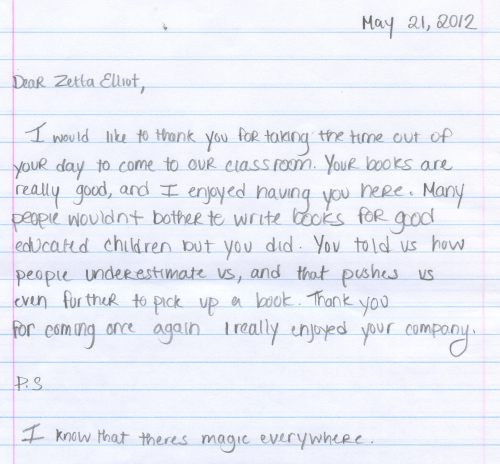 May 21, 2012
Dear Zetta Elliot,
I would like to thank you for taking the time out of
your day to come to our classroom. Your books are
really good, and I enjoyed having you here. Many
people wouldn't bother to write books for good
educated children but you did. You told us how
people underestimate us, and that pushes us
even further to pick up a book. Thank you
for coming once again I really enjoyed your company.
P.S
I know that theres magic everywhere.